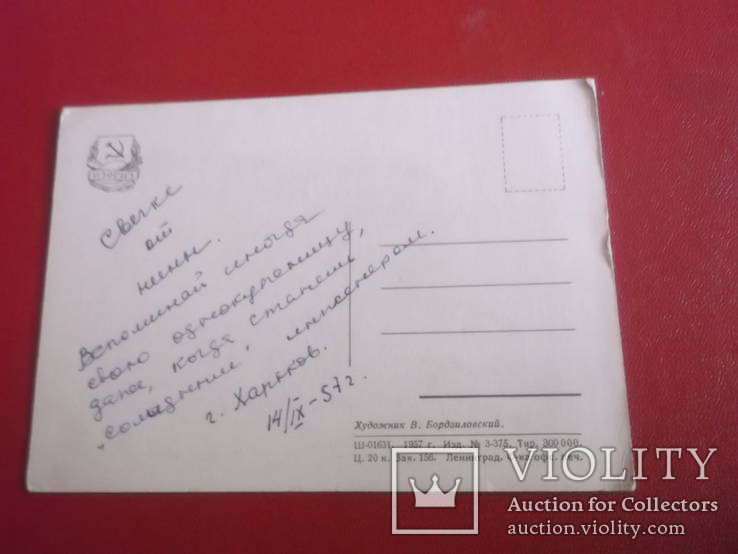 Светке
от
Нины.
Вспоминай иногда
свою однокурсницу,
даже, когда станешь
"солидным" инженером.
г. Харьков.
14/IX-57 г.
Художник В. Бордзиловский.
Ш-01631. 1957 г. Изд. № 3-375. Тир. 300 000.
Ц. 20 к. Зак. 156. Ленинград. офс. печ.
VIOLITY
Auction for Collectors
auction.violity.com